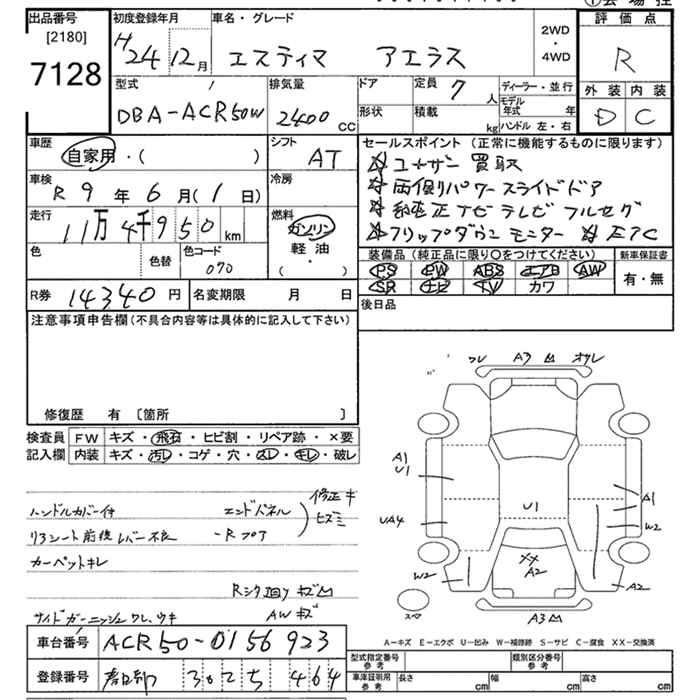 出品番号 [2180] 7128
初度登録年月 H24 12月
車名・グレード エスティマ アエラス
2WD・4WD
評価点 R
外装 D 内装 C
型式 DBA-ACR50W
排気量 2400 CC
ドア 定員 7人
形状 積載 kg
ディーラー・並行
モデル年式 年
ハンドル 左・右
車歴 自家用・( )
シフト AT
セールスポイント (正常に機能するものに限ります)
☆ ユーザー買取
☆ 両側パワースライドドア
☆ 純正ナビ テレビ フルセグ
☆ フリップダウンモニター ☆ ETC
車検 R 9年 6月(1日)
冷房
走行 11万4千950km
燃料 ガソリン 軽油・( )
色 色替 色コード 070
装備品(純正品に限り○をつけてください)
PS PW ABS エアB AW
SR ナビ TV カワ
新車保証書 有・無
R券 14340円
名変期限 月 日
後日品
注意事項申告欄(不具合内容等は具体的に記入して下さい)
修復歴 有 [箇所 ]
検査員記入欄
FW キズ・飛石・ヒビ割・リペア跡・×要
内装 キズ・汚レ・コゲ・穴・スレ・キレ・破レ
ハンドルカバー付 エンドパネル 修正キ
リヤシート前後レバー不良 -Rフロア ヒズミ
カーペットキレ
Rシタ廻りキズ凹
サイドガーニッシュワレ、ウキ AWキズ
車台番号 ACR50-0156923
登録番号 春日部 302 ち 464
ワレ A3凹 オサレ
A1
U1
UA4
U1
A1
W2
XX
A2
W2
A2
スペ
A3凹
A-キズ E-エクボ U-凹み W-補修跡 S-サビ C-腐食 XX-交換済
型式指定番号 参考
類別区分番号 参考
車庫証明用 参考 長さ cm 幅 cm 高さ cm